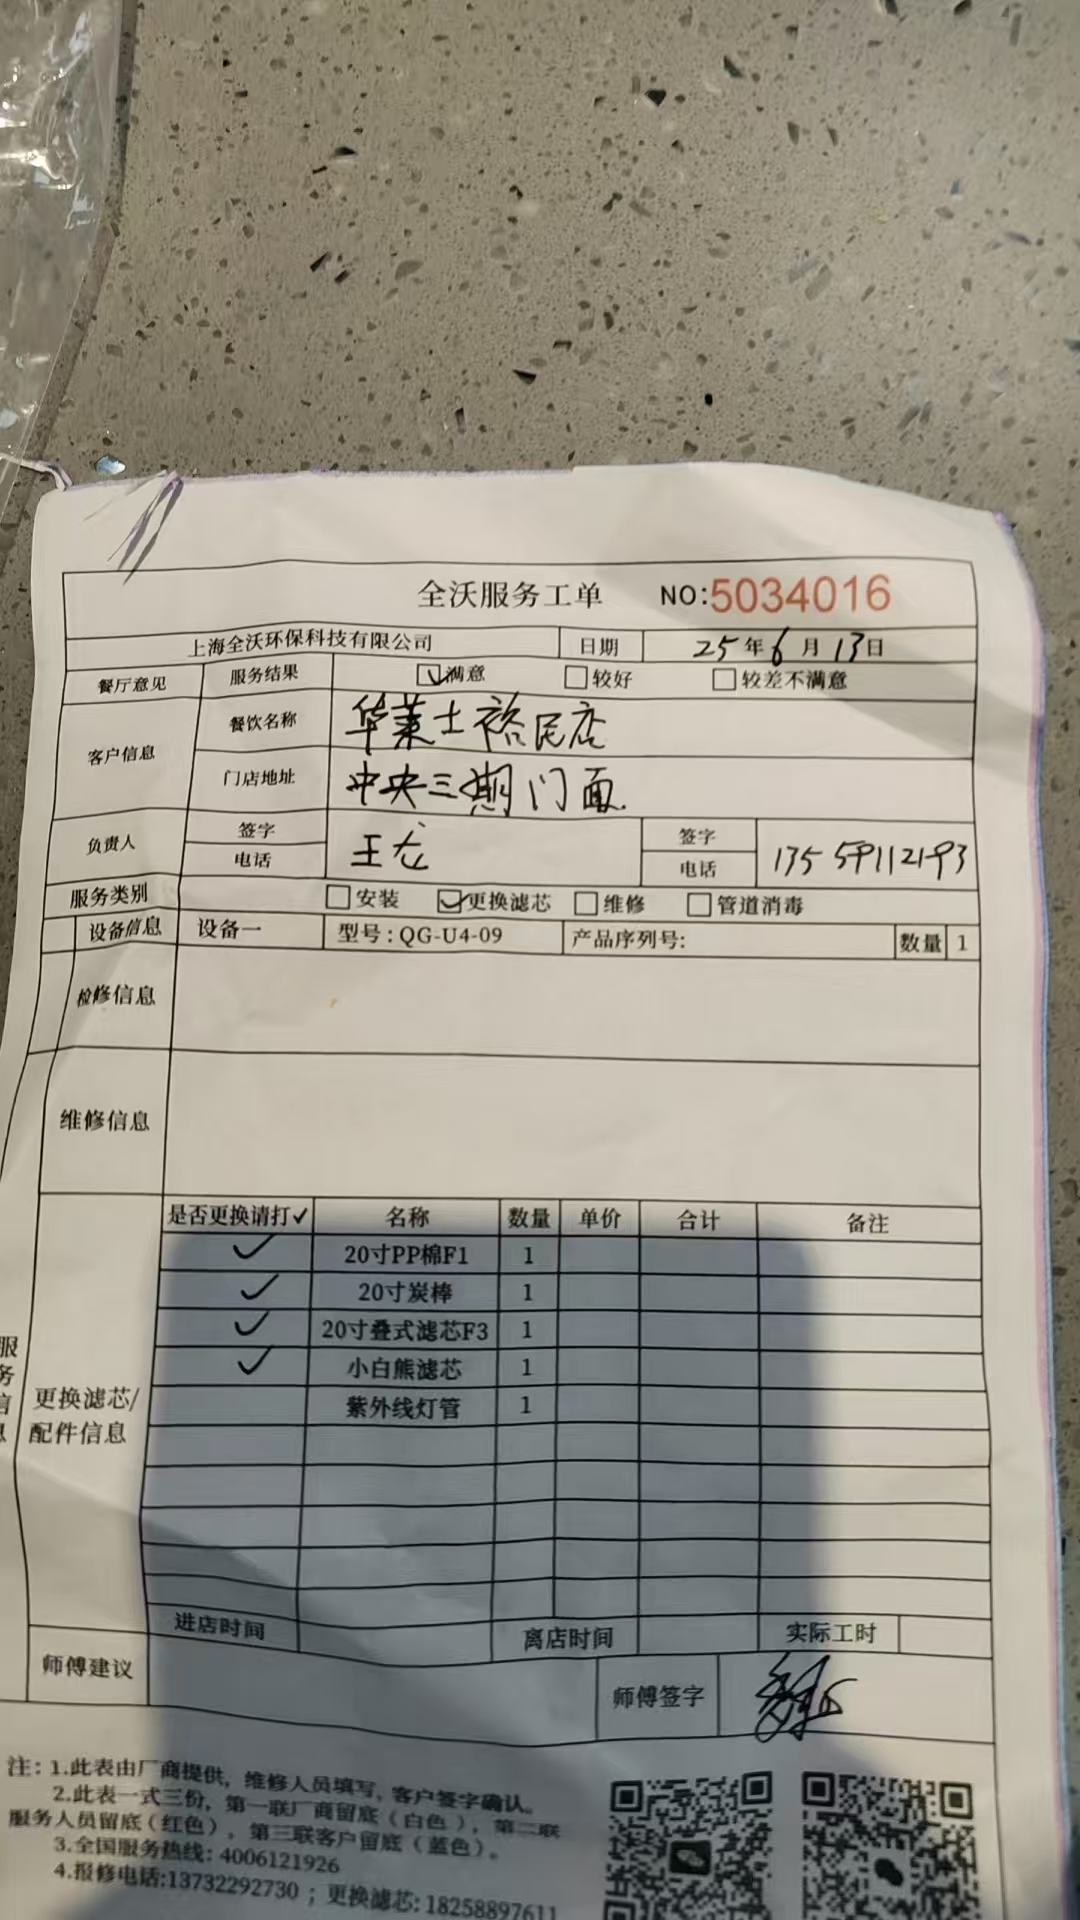 全沃服务工单 NO:5034016
上海全沃环保科技有限公司 日期 25年6月13日
餐厅意见 服务结果 满意 较好 较差不满意
客户信息 餐饮名称 华莱士裕民店
门店地址 中央三期门面
负责人 签字 王龙 签字
电话 电话 13559112193
服务类别 安装 更换滤芯 维修 管道消毒
设备信息 设备一 型号:QG-U4-09 产品序列号: 数量 1
检修信息
维修信息
是否更换请打✓ 名称 数量 单价 合计 备注
✓ 20寸PP棉F1 1
✓ 20寸炭棒 1
✓ 20寸叠式滤芯F3 1
✓ 小白熊滤芯 1
紫外线灯管 1
服务信息
更换滤芯/
配件信息
进店时间 离店时间 实际工时
师傅建议 师傅签字
注:1.此表由厂商提供,维修人员填写,客户签字确认。
2.此表一式三份,第一联厂商留底(白色),第二联
服务人员留底(红色),第三联客户留底(蓝色)。
3.全国服务热线:4006121926
4.报修电话:13732292730;更换滤芯:18258897611